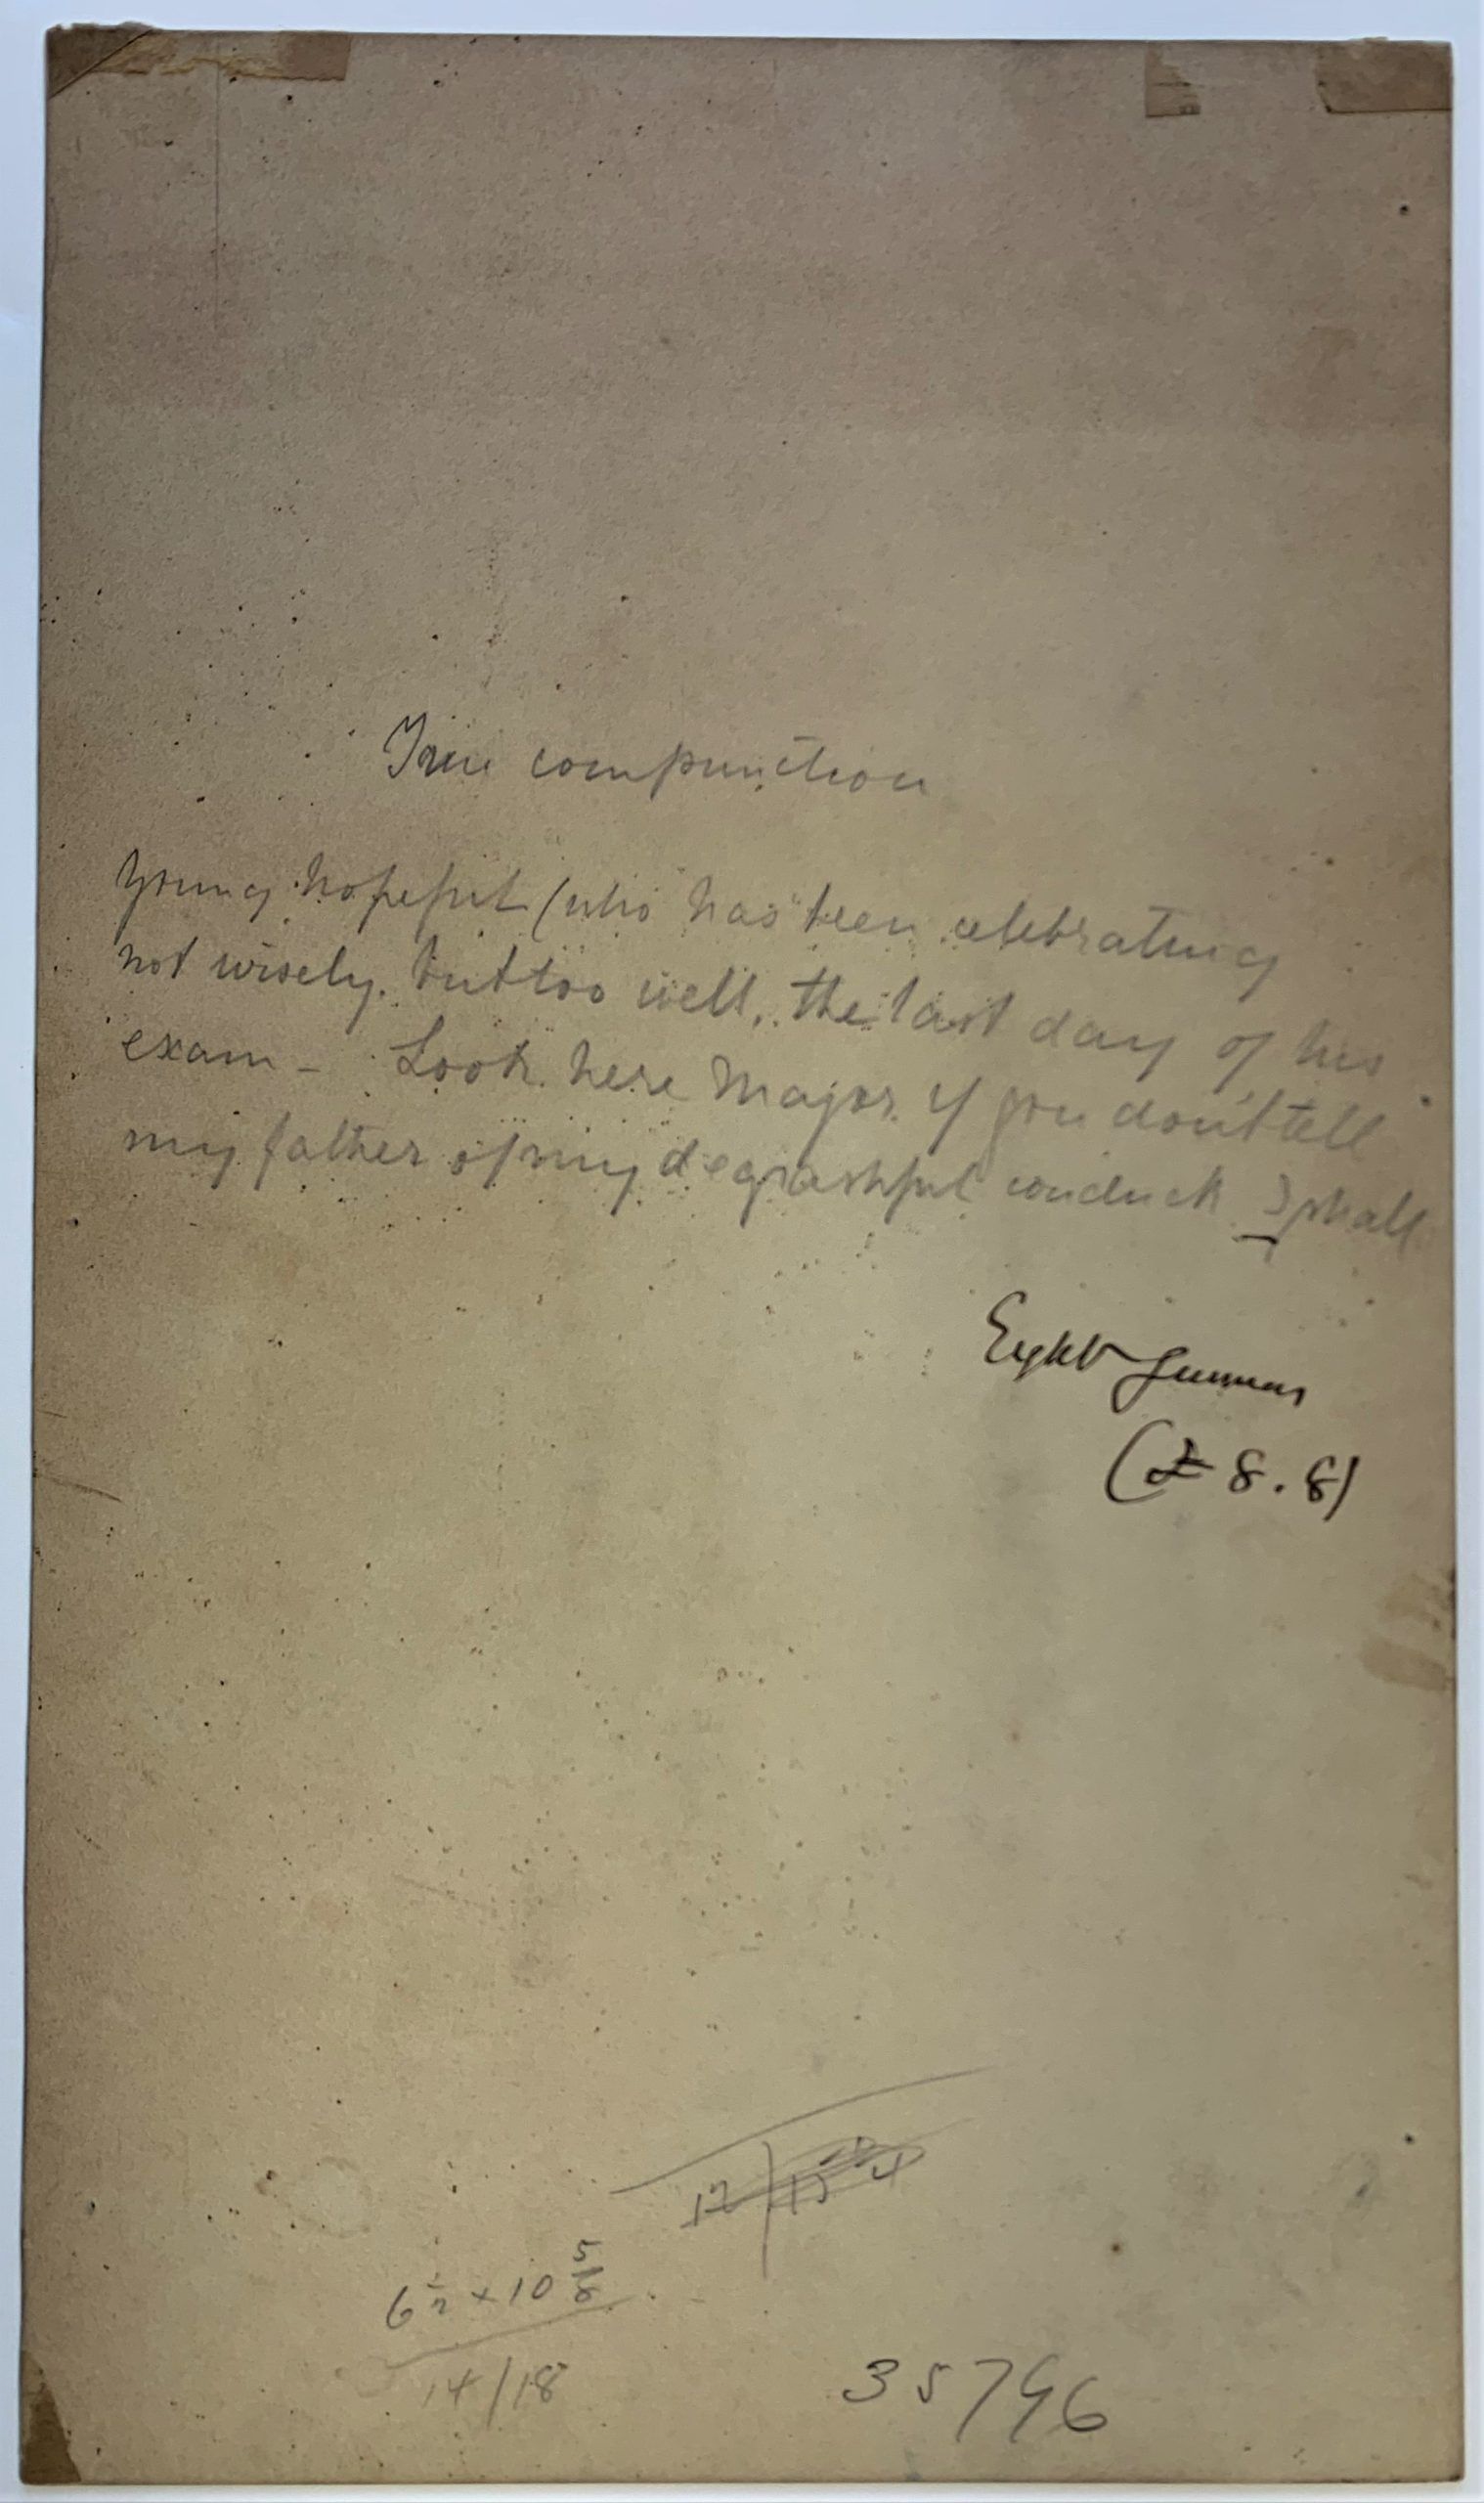 True compunction
Young hopeful (who has been celebrating
not wisely. but too well, the last day of his
exam - Look here Major if you don't tell
my father of my degrashful conduck I shall
Eight Guineas
(£ 8.8)
12 | 15
6 1/2 x 10 5/8
14/18
35796